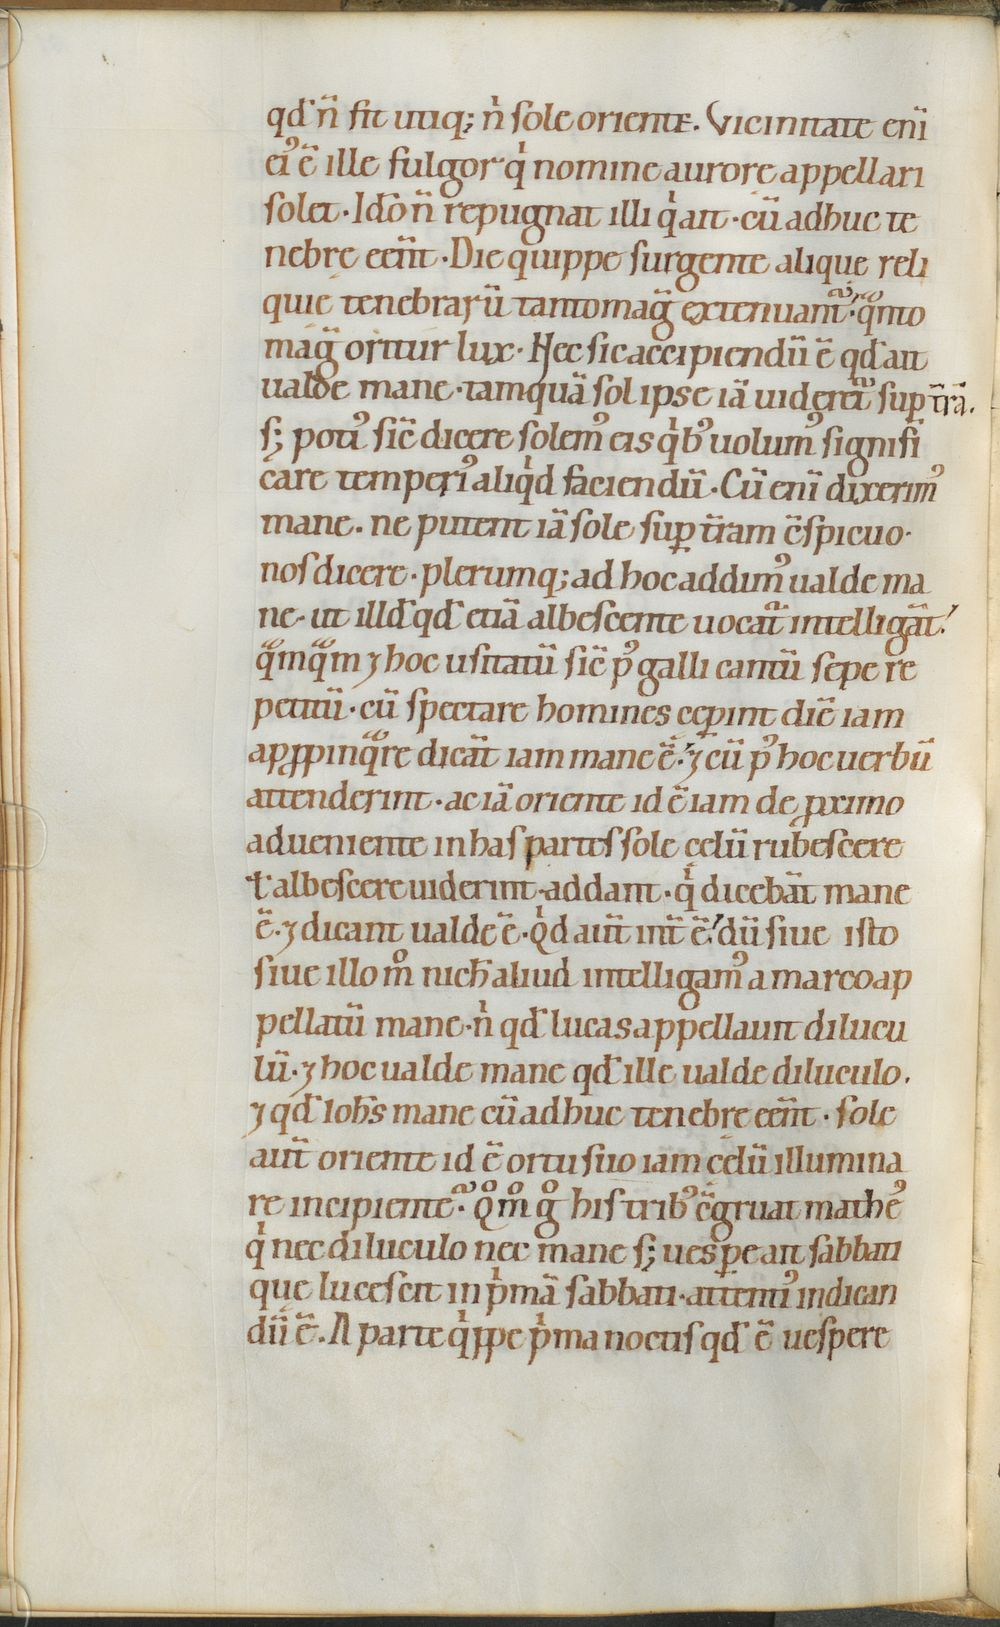 qđ n̄ fit utiq; n̍ sole oriente. Vicinitate enī
ei᾽ ē ille fulgor q̍ nomine aurore appellari
solet. Iđo n̄ repugnat illi q̍ ait. cū adhuc te
nebrę eēnt. Die quippe surgente alique reli
quię tenebrarū tanto mag̃ extenuant᷑. q̊nto
mag̃ oritur lux. Nec sic accipiendū ē qđ ait
ualde mane. tamquā sol ipse iā uideret᷑ sup t̄rā.
s; poti᾽ sic̄ dicere solem᾽ eis q̍b᾽ uolum᾽ signifi
care temperi᾽ aliq̍d faciendū. Cū enī dixerim᾽
mane. ne putent iā sole sup t̄ram c̄spicuo.
nos dicere. plerumq; ad hoc addim᾽ ualde ma
ne. ut illđ qđ etiā albescente uocat᷑ intelligāt.
qᷓmqᷓm ⁊ hoc usitatū sic̄ p᾽ galli cantū sepe re
petitū. cū spectare homines cęperint diē iam
apꝓpinqᷓre dicāt iam mane ē. ⁊ cū p᾽ hoc uerbū
attenderint. ac iā oriente id ē iam de ꝓximo
adueniente in has partes sole cęlū rubescere
ł albescere uiderint. addant. q̍ dicebāt mane
ē. ⁊ dicant ualde ē. Q̍d aut̄ int̄ ē. dū siue isto
siue illo m̊ nich̄ aliud intelligam᾽ a marco ap
pellatū mane. n̍ qđ lucas appellauit dilucu
lū. ⁊ hoc ualde mane qđ ille ualde diluculo.
⁊ qđ Ioh̄s mane cū adhuc tenebrę eēnt. sole
aut̄ oriente id ē ortu suo iam cęlū illumina
re incipiente. Q̊m̊ g̊ his trib᾽ c̄gruat mathe᾽
q̍ nec diluculo nec mane s; uespe ait sabbati
quę lucescit in p̍mā sabbati. attenti᾽ indican
dū ē. A parte q̍ppe p̍ma noctis qđ ē uespere